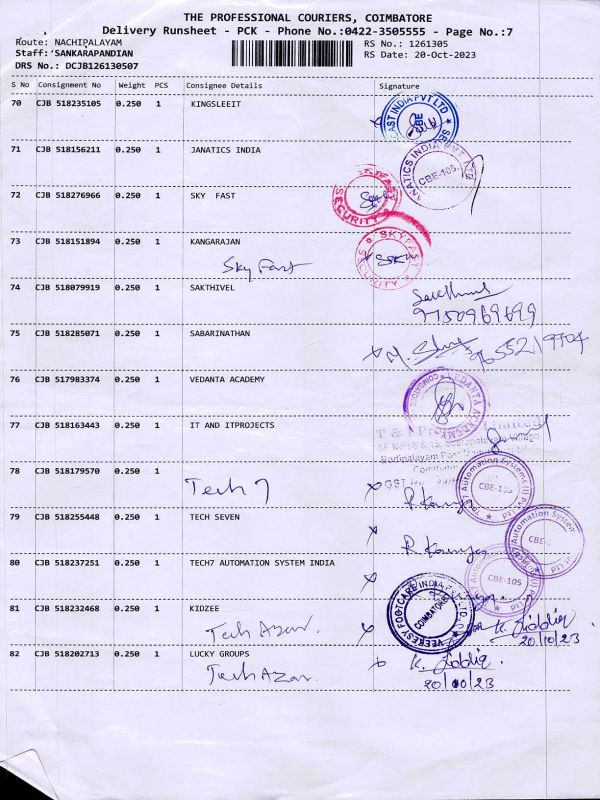 THE PROFESSIONAL COURIERS, COIMBATORE
Delivery Runsheet - PCK - Phone No.:0422-3505555 - Page No.:7
Route: NACHIPALAYAM RS No.: 1261305
Staff: SANKARAPANDIAN RS Date: 20-Oct-2023
DRS No.: DCJB126130507
S No Consignment No Weight PCS Consignee Details Signature
70 CJB 518235105 0.250 1 KINGSLEEIT
AST INDIA PVT LTD CBE
71 CJB 518156211 0.250 1 JANATICS INDIA
ANATICS INDIA CBE-105
72 CJB 518276966 0.250 1 SKY FAST
SECURITY
73 CJB 518151894 0.250 1 KANGARAJAN
Sky Fast
SKYFAST SECURITY
74 CJB 518079919 0.250 1 SAKTHIVEL
75 CJB 518285071 0.250 1 SABARINATHAN
76 CJB 517983374 0.250 1 VEDANTA ACADEMY
VEDANTA ACADEMY
77 CJB 518163443 0.250 1 IT AND ITPROJECTS
78 CJB 518179570 0.250 1
Tech 7
Automation Systems (I) CBE-105
79 CJB 518255448 0.250 1 TECH SEVEN
Automation System CBE-
80 CJB 518237251 0.250 1 TECH7 AUTOMATION SYSTEM INDIA
CBE-105
81 CJB 518232468 0.250 1 KIDZEE
Tech Azar.
VEERESY FOOTCARE INDIA COIMBATORE
K. Siddiq
20/10/23
82 CJB 518202713 0.250 1 LUCKY GROUPS
Tech Azar.
K. Siddiq
20/10/23